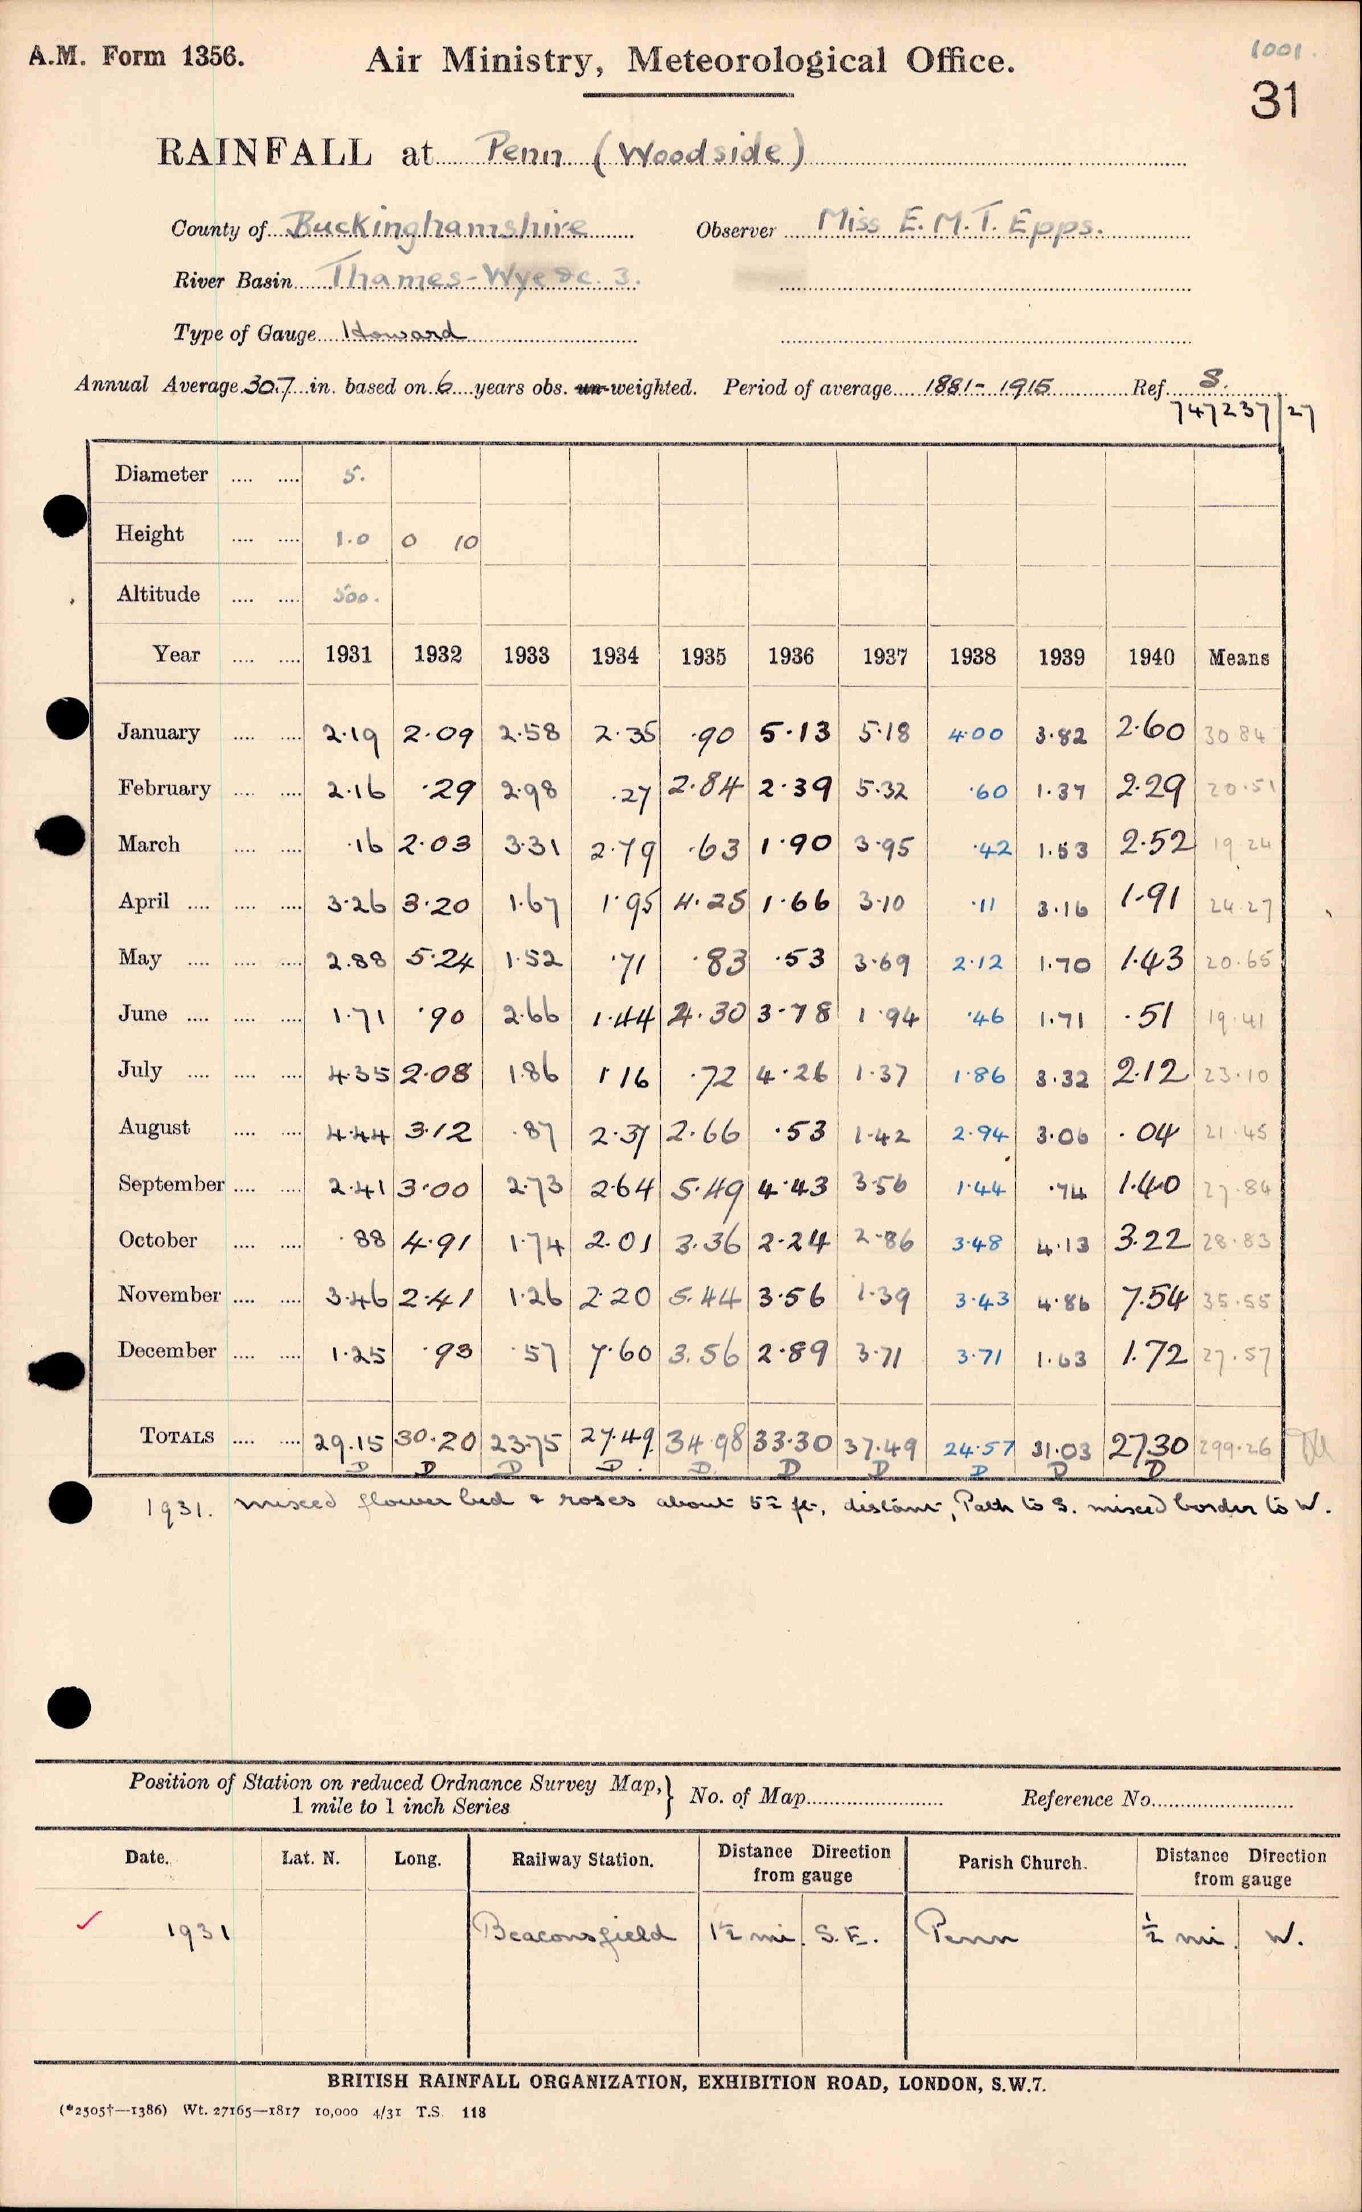 A.M. Form 1356.
Air Ministry, Meteorological Office.
1001.
31
RAINFALL at Penn (Woodside)
County of Buckinghamshire Observer Miss E.M.T. Epps.
River Basin Thames-Wye &c. 3.
Type of Gauge Howard
Annual Average 30.7 in. based on 6 years obs. un-weighted. Period of average 1881-1915 Ref. S.
747237/27
Diameter 5.
Height 1.0 0 10
Altitude 500.
Year 1931 1932 1933 1934 1935 1936 1937 1938 1939 1940 Means
January 2.19 2.09 2.58 2.35 .90 5.13 5.18 4.00 3.82 2.60 30 84
February 2.16 .29 2.98 .27 2.84 2.39 5.32 .60 1.37 2.29 20.51
March .16 2.03 3.31 2.79 .63 1.90 3.95 .42 1.53 2.52 19.24
April 3.26 3.20 1.67 1.95 4.25 1.66 3.10 .11 3.16 1.91 24.27
May 2.88 5.24 1.52 .71 .83 .53 3.69 2.12 1.70 1.43 20.65
June 1.71 .90 2.66 1.44 4.30 3.78 1.94 .46 1.71 .51 19.41
July 4.35 2.08 1.86 1.16 .72 4.26 1.37 1.86 3.32 2.12 23.10
August 4.44 3.12 .87 2.37 2.66 .53 1.42 2.94 3.06 .04 21.45
September 2.41 3.00 2.73 2.64 5.49 4.43 3.56 1.44 .74 1.40 27.84
October .88 4.91 1.74 2.01 3.36 2.24 2.86 3.48 4.13 3.22 28.83
November 3.46 2.41 1.26 2.20 5.44 3.56 1.39 3.43 4.86 7.54 35.55
December 1.25 .93 .57 7.60 3.56 2.89 3.71 3.71 1.63 1.72 27.57
TOTALS 29.15 30.20 23.75 27.49 34.98 33.30 37.49 24.57 31.03 27.30 299.26
D D D D D D D D D D
1931. mixed flower bed & roses about 5½ ft. distant, Path to S. mixed border to W.
Position of Station on reduced Ordnance Survey Map, } No. of Map Reference No.
1 mile to 1 inch Series
Date. Lat. N. Long. Railway Station. Distance Direction from gauge Parish Church. Distance Direction from gauge
✓ 1931 Beaconsfield 1½ mi. S.E. Penn ½ mi. W.
BRITISH RAINFALL ORGANIZATION, EXHIBITION ROAD, LONDON, S.W.7.
(*2505†—1386) Wt. 27165—1817 10,000 4/31 T.S. 118